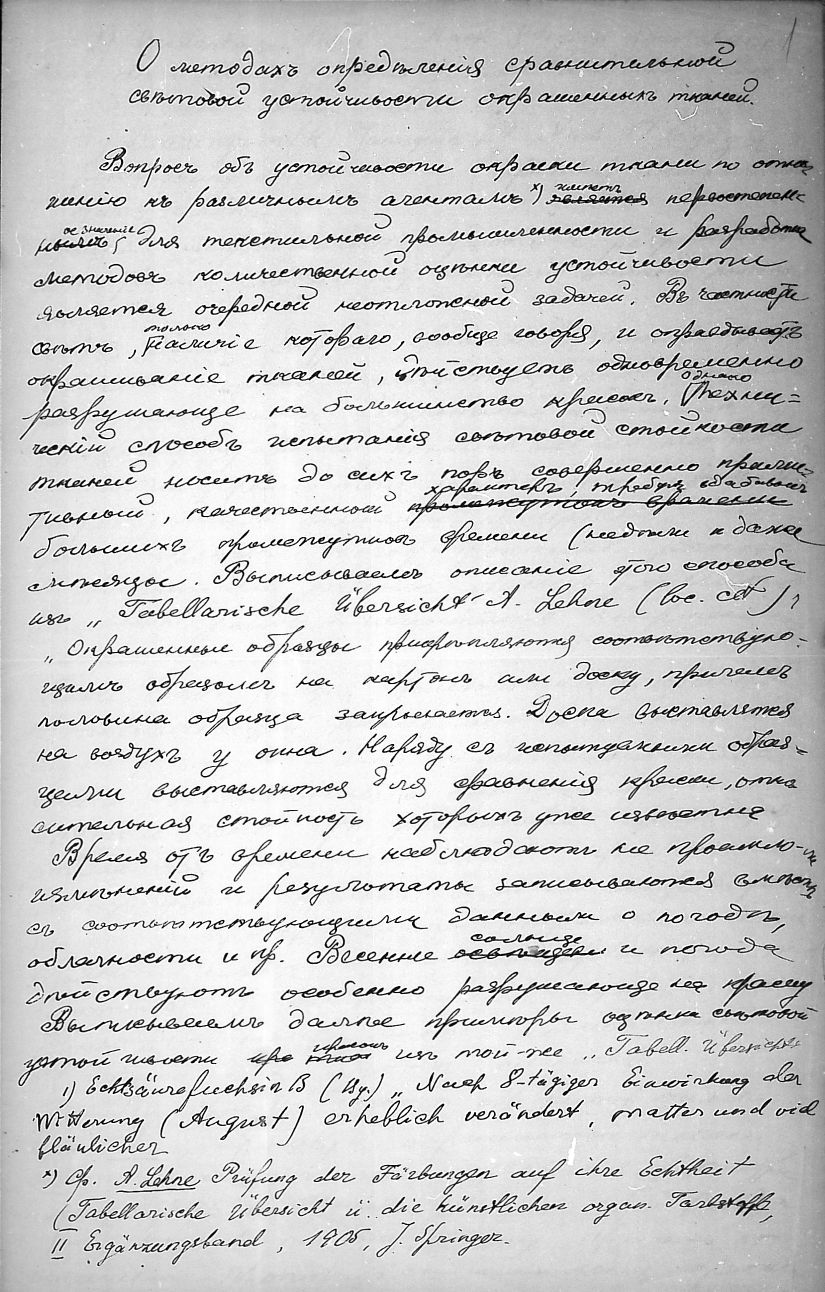 1
О методахъ опредѣленія сравнительной
свѣтовой устойчивости окрашенныхъ тканей.
Вопросъ объ устойчивости окраски ткани по отно-
шенію къ различнымъ агентамъ х) имѣетъ является первостепен-
ное значеніе нымъ для текстильной промышленности и разработка
методовъ количественной оцѣнки устойчивости
является очередной неотложной задачей. Въ частности
свѣтъ, только наличіе котораго, вообще говоря, и оправдываетъ
окрашиваніе тканей, дѣйствуетъ одновременно
разрушающе на большинство красокъ. Однако Техни-
ческій способъ испытанія свѣтовой стойкости
тканей носитъ до сихъ поръ совершенно прими-
тивный, качественный характеръ, требуя промежутокъ времени
большихъ промежутковъ времени (недѣли и даже
мѣсяцы. Выписываемъ описаніе этого способа
изъ „Tabellarische Übersicht" A. Lehne (loc. cit),
„Окрашенные образцы прикрѣпляются соотвѣтствую-
щимъ образомъ на картонъ или доску, причемъ
половина образца закрывается. Доска выставляется
на воздухъ у окна. Наряду съ испытуемыми образ-
цами выставляются для сравненія краски, отно
сительная стойкость которыхъ уже извѣстна
Время отъ времени наблюдаютъ не произошло-ли
измѣненій и результаты записываются вмѣстѣ
съ соотвѣтствующими данными о погодѣ,
облачности и пр. Весеннее солнце и погода
дѣйствуютъ особенно разрушающе на краску
Выписываемъ далѣе примѣры оцѣнки свѣтовой
устойчивости красокъ изъ той-же „Tabell. Übersicht
1) Echtsäurefuchsin B (By.) „Nach 8-tägiger Einwirkung der
Witterung (August) erheblich verändert, matter und viel
bläulicher
х) Ср. A. Lehne Prüfung der Färbungen auf ihre Echtheit
(Tabellarische Übersicht ü. die künstlichen organ. Farbstoffe,
II Ergänzungsband, 1905, J. Springer.